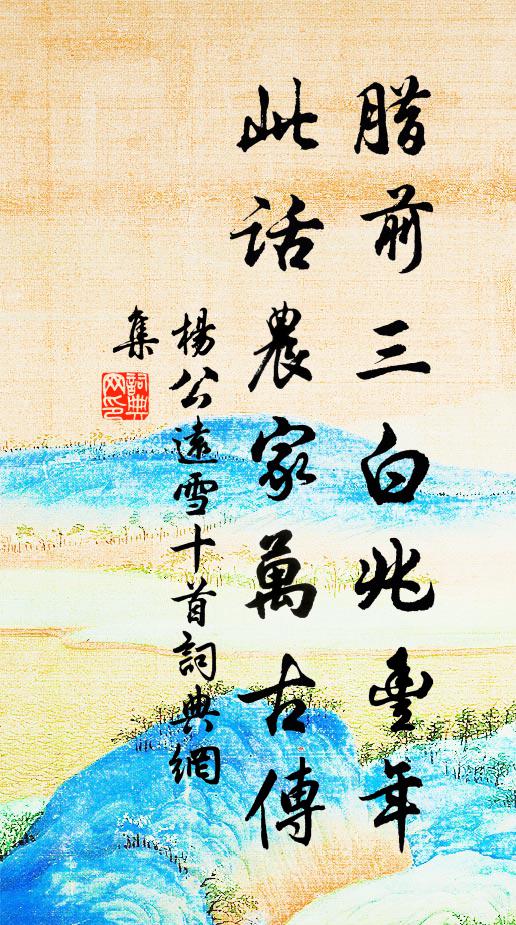 腊前三白兆豐年
此話農家萬古傳
楊公遠雪十首詞典網
集
詞典
网印